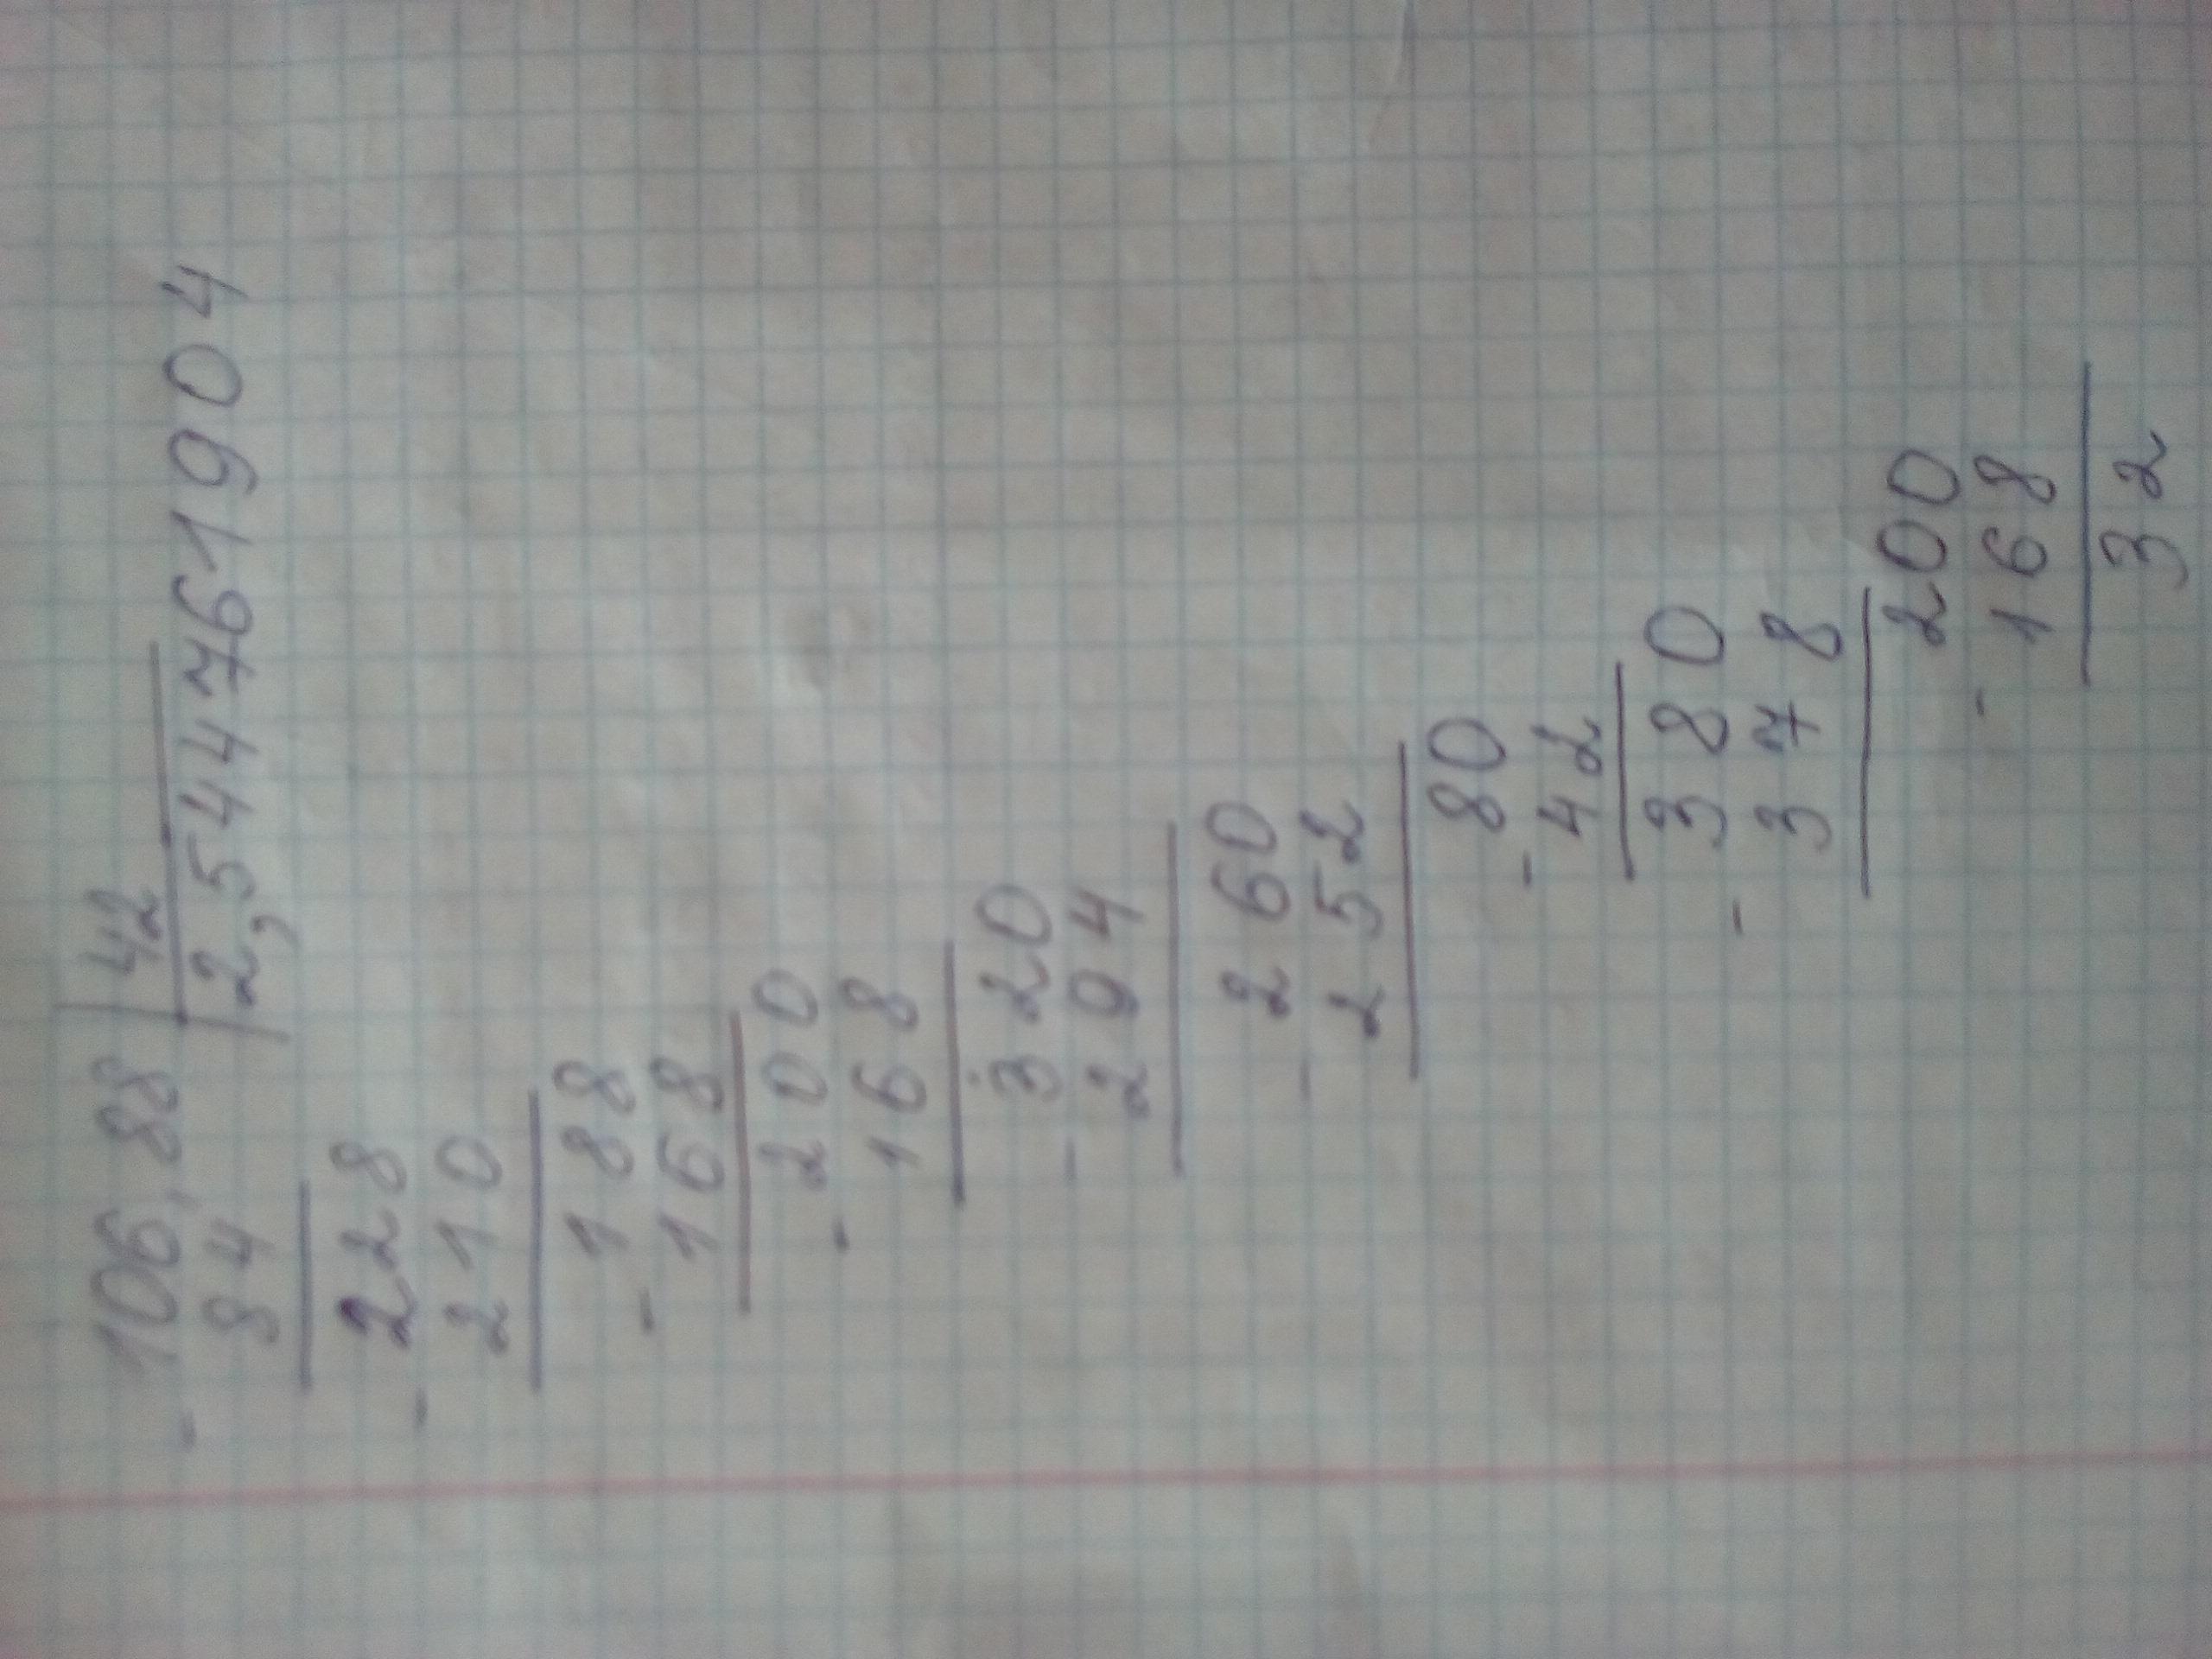 - 106,88 | 42
84 | 2,544761904
- 228
210
- 188
168
- 200
168
- 320
294
- 260
252
- 80
42
- 380
378
- 200
168
32